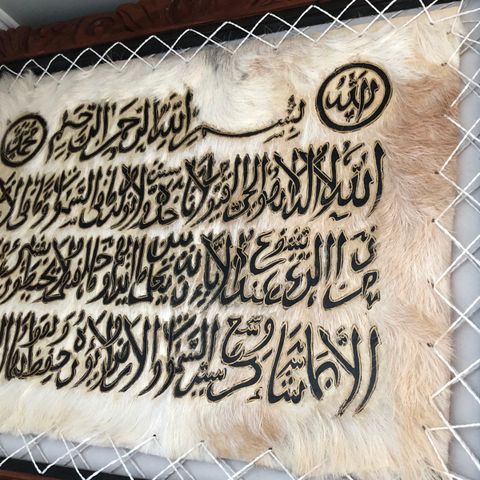 الله
بسم الله الرحمن الرحيم
محمد
الله لا اله الا هو الحي القيوم لا تاخذه سنة ولا نوم له ما في السموات وما في الا
من ذا الذي يشفع عنده الا باذنه يعلم ما بين ايديهم وما خلفهم ولا يحيطون
الا بما شاء وسع كرسيه السموات والارض ولا يؤده حفظهما